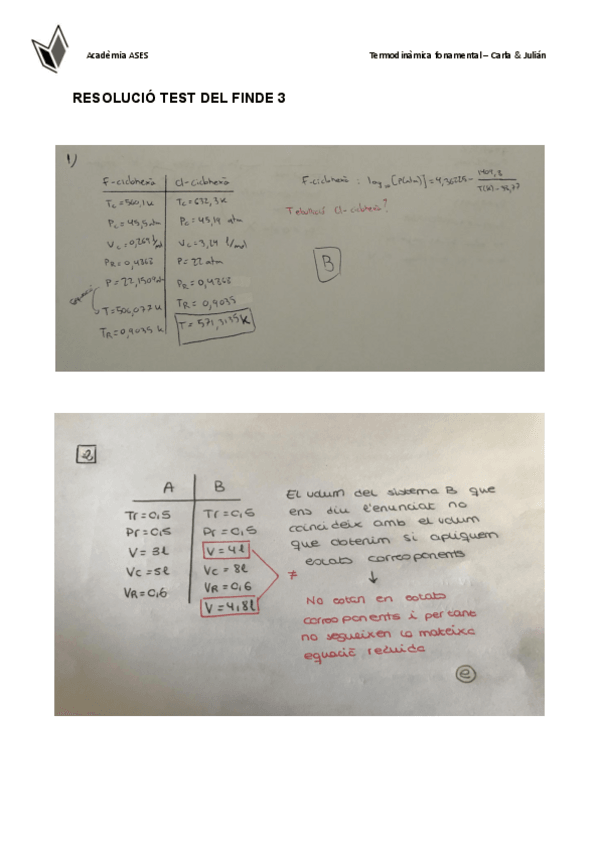 Acadèmia ASES
Termodinàmica fonamental – Carla & Julián
RESOLUCIÓ TEST DEL FINDE 3
1)
F-ciclohexà Cl-ciclohexà
Tc = 560,1 K Tc = 632,3 K
Pc = 45,5 atm Pc = 45,14 atm
Vc = 0,269 l/mol Vc = 3,24 l/mol
PR = 0,4868 P = 22 atm
P = 22,1509 atm PR = 0,4868
T = 506,077 K TR = 0,9035
TR = 0,9035 K T = 571,3135 K
T ebullició Cl-ciclohexà?
B
2
A B
Tr = 0,5 Tr = 0,5
Pr = 0,5 Pr = 0,5
V = 3l V = 4l
Vc = 5l Vc = 8l
VR = 0,6 VR = 0,6
V = 4,8l
≠
El volum del sistema B que
ens diu l'enunciat no
coincideix amb el volum
que obtenim si apliquem
estats corresponents
↓
No estan en estats
corresponents i per tant
no segueixen la mateixa
equació reduida
e